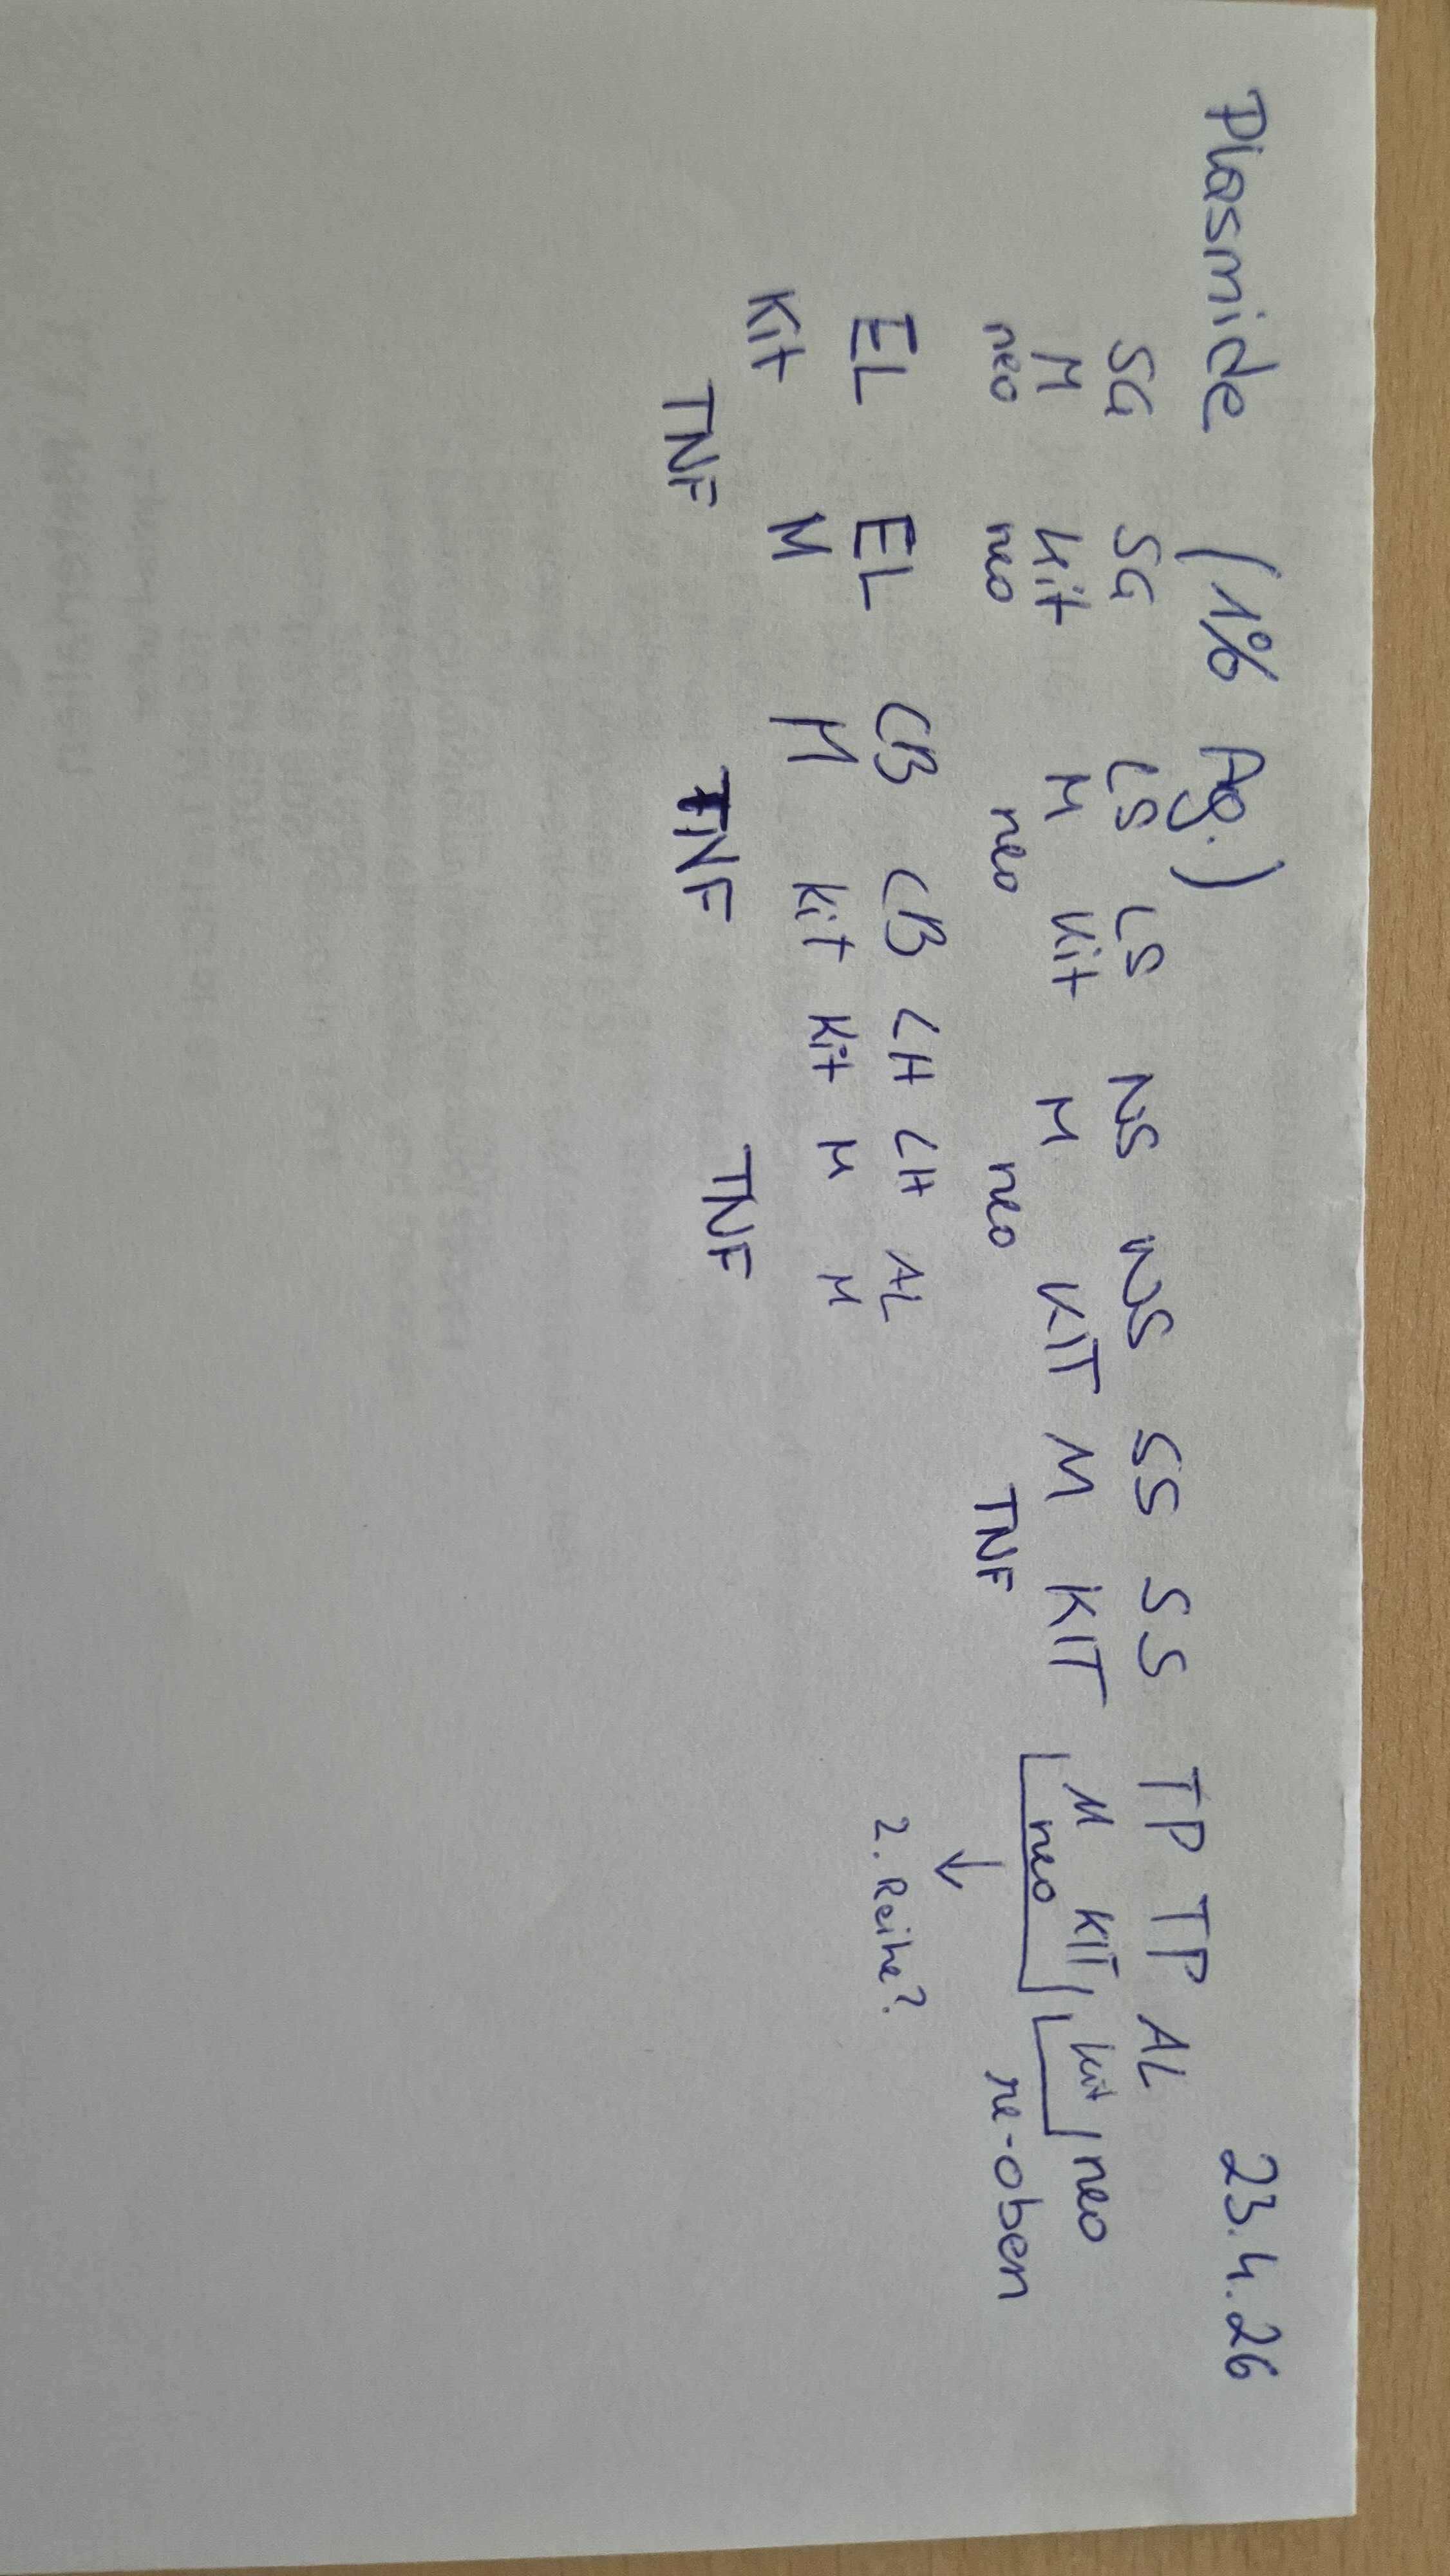 Plasmide (1% Ag.) 23.4.26
SG SG LS LS NS NS SS SS TP TP AL
M Kit M Kit M KIT M KIT M KIT Kit neo
neo neo neo neo TNF neo re-oben
↓
EL EL CB CB LH LH AL 2. Reihe?
Kit M M Kit Kit M M
TNF TNF TNF